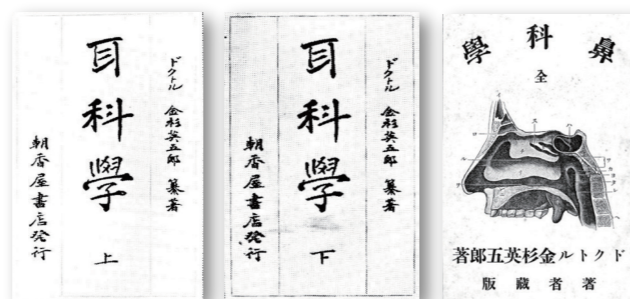 ドクトル 金杉英五郎 纂著
耳科學
上
朝香屋書店発行
ドクトル 金杉英五郎 纂著
耳科學
下
朝香屋書店発行
鼻科學
全
ドクトル金杉英五郎著
著者蔵版